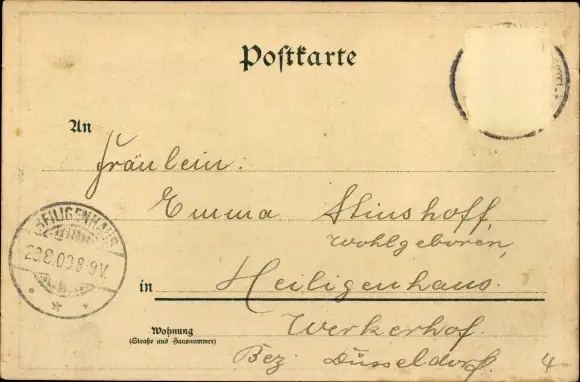 Postkarte
An
Fräulein:
Emma Stinshoff,
Wohlgeboren,
HEILIGENHAUS
8-9V.
in Heiligenhaus.
Werkerhof.
Wohnung
(Straße und Hausnummer)
Bez. Düsseldorf.
4